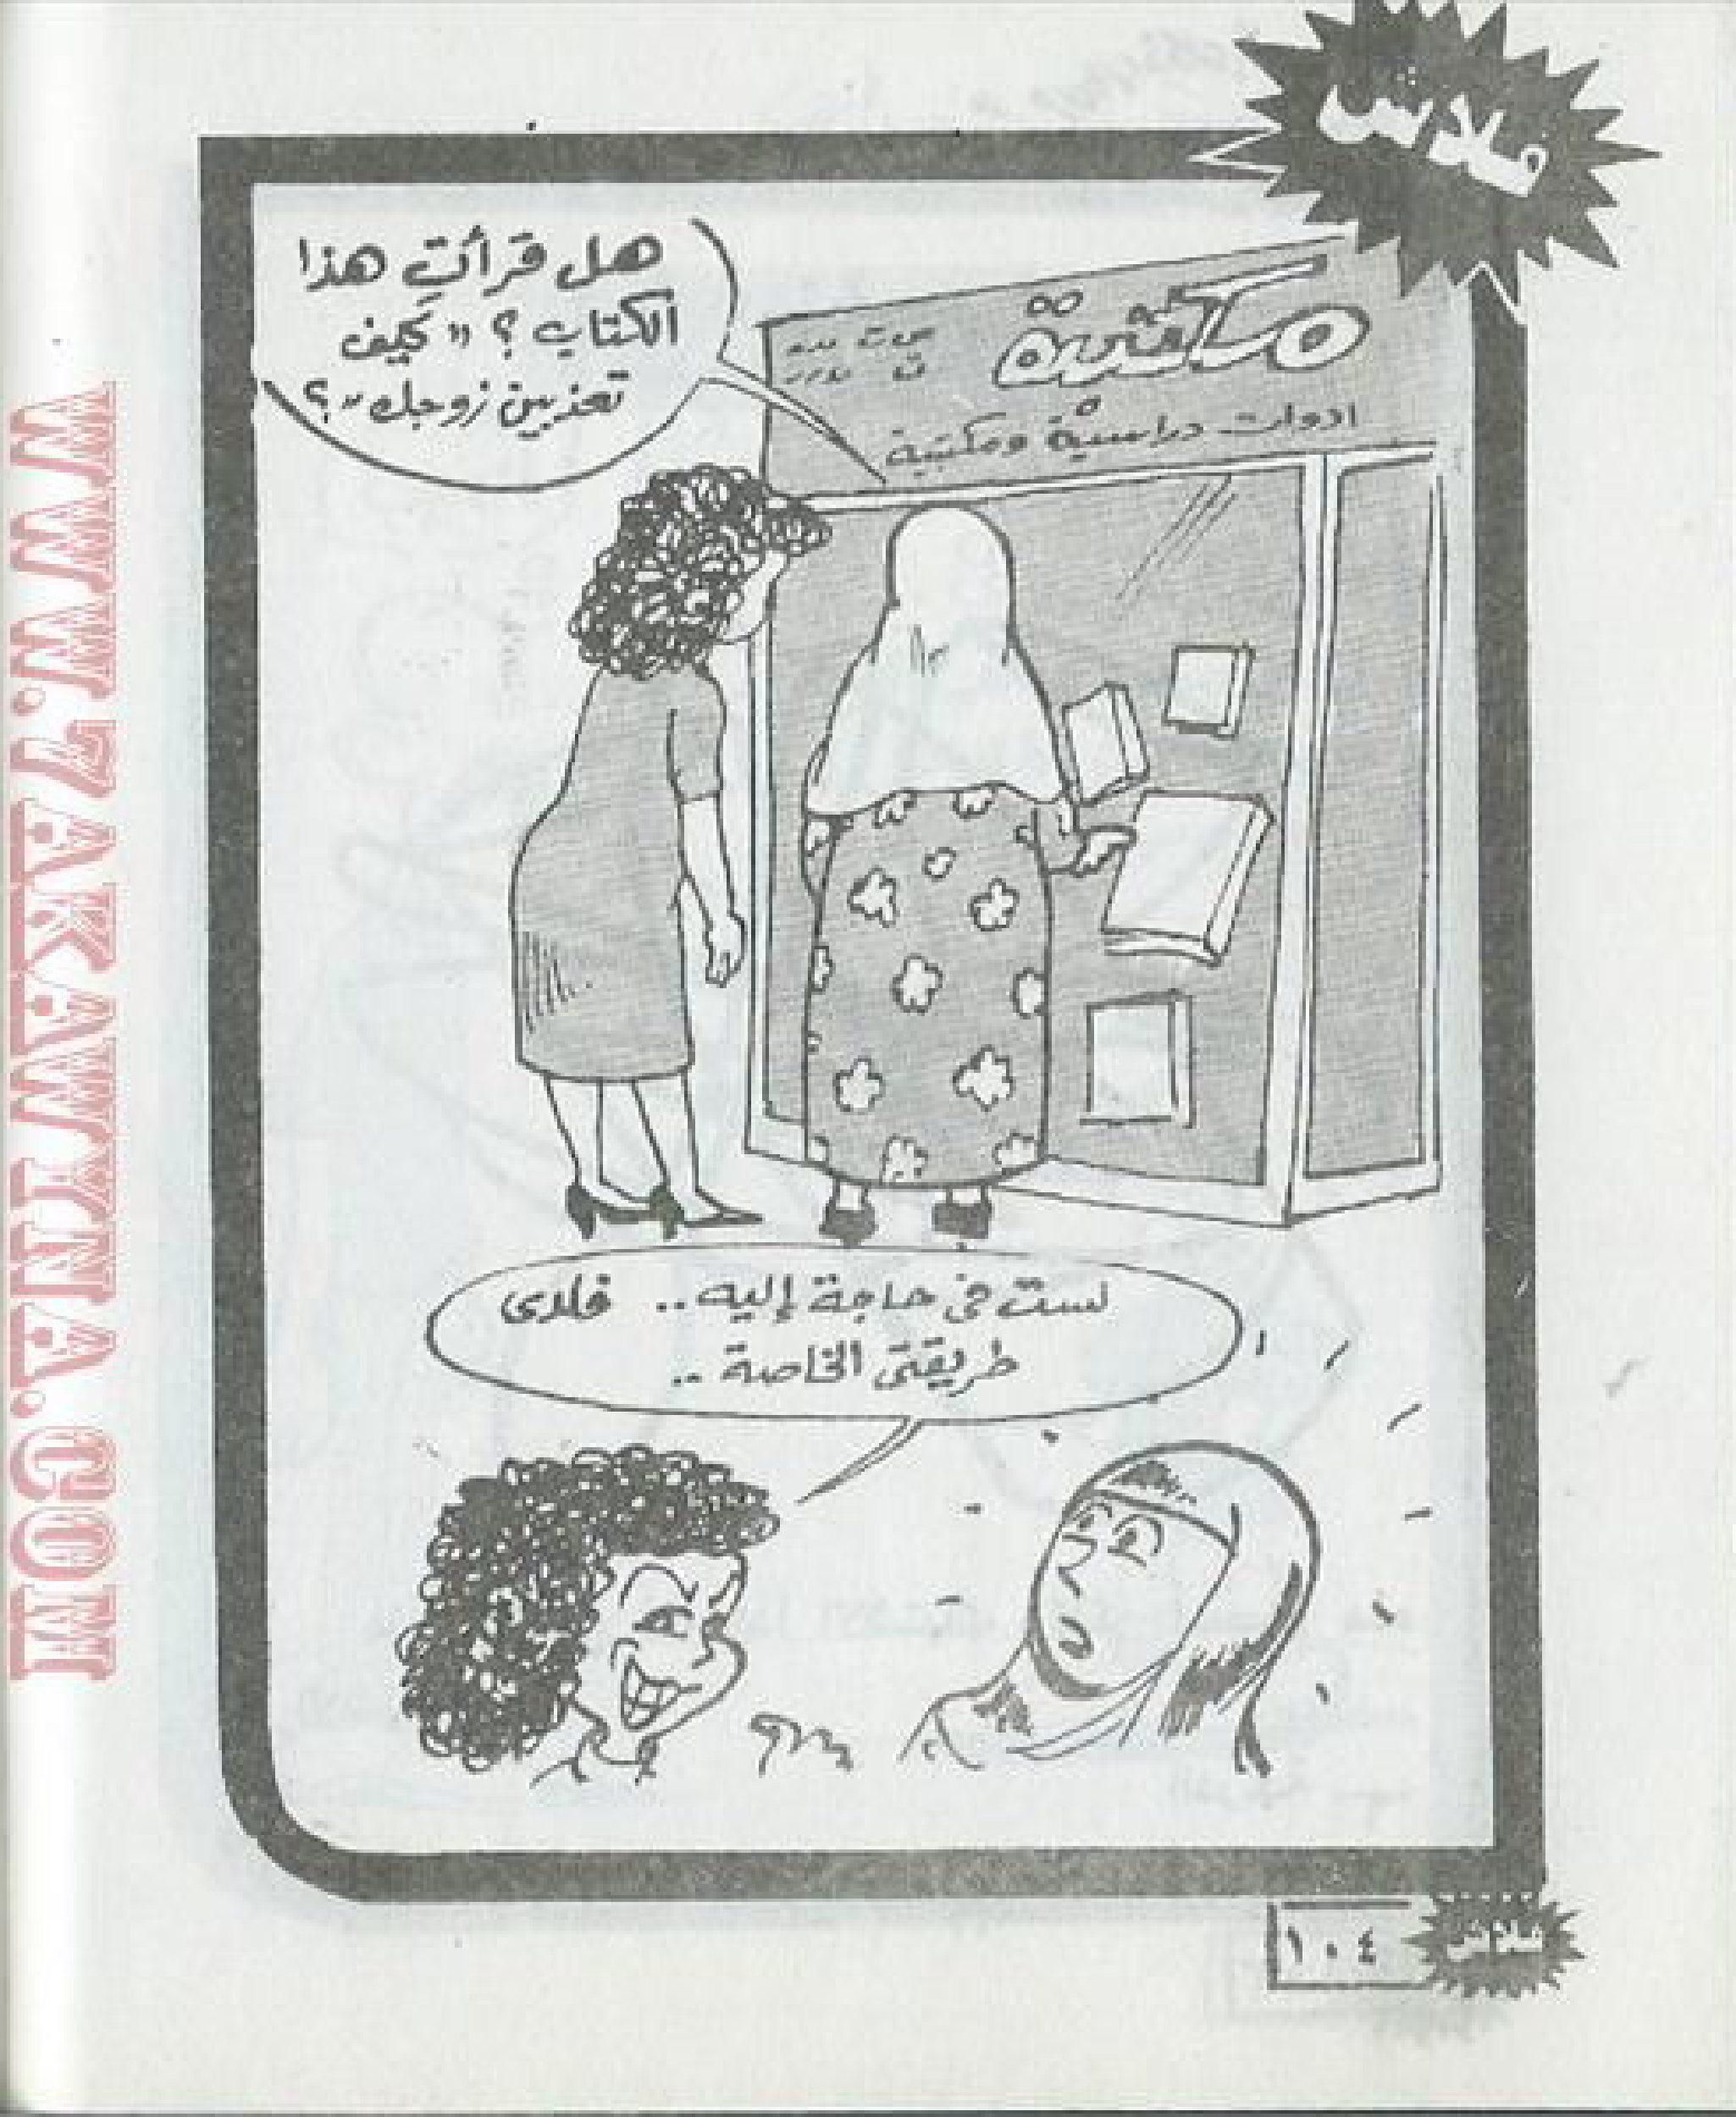 فلاش
هل قرأتِ هذا
الكتاب؟ "كيف
تعذبين زوجك"؟
مكتبة
ادوات دراسية ومكتبية
لست في حاجة إليه.. فلدى
طريقتى الخاصة..
١٠٤
فلاش
WWW.7AKAWTINA.COM